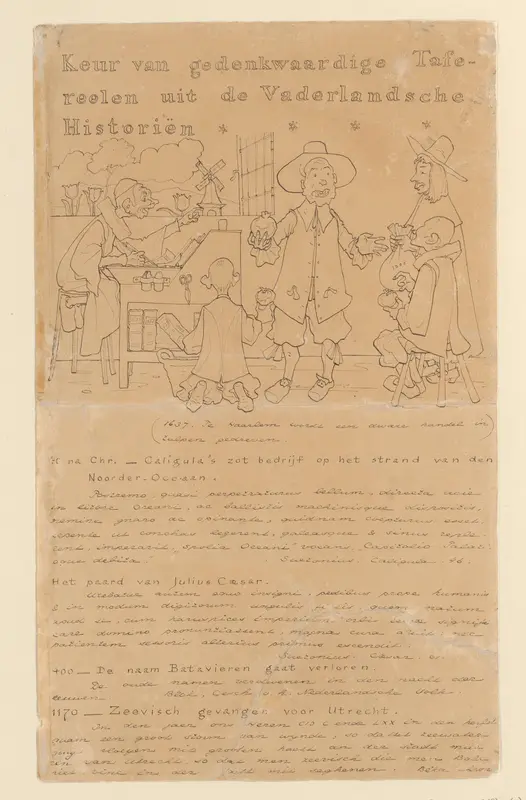 Keur van gedenkwaardige Tafe-
reelen uit de Vaderlandsche
Historiën * * * *
(1637. Te Haarlem wordt een dwaze handel in)
tulpen gedreven.
na Chr. — Caligula's zot bedrijf op het strand van den
Noorder-Oceaan.
Postremo quasi perpetraturus bellum, directa acie
in litore Oceani, ac ballistis machinisque dispositis,
nemine gnaro ac opinante, quidnam coepturus esset
repente ut conchas legerent, galeasque & sinus reple-
rent, imperavit, spolia Oceani vocans, Capitolio Palati-
oque debita. Suetonius. Caligula. 46.
Het paard van Julius Cæsar.
Utebatur autem equo insigni, pedibus prope humanis
& in modum digitorum ungulis fissis, quem natum
apud se, cum haruspices imperium orbis terræ signifi-
care domino pronuntiassent, magna cura aluit; nec
patientem sessoris alterius primus ascendit.
Suetonius. Cæsar. 61.
400 — De naam Batavieren gaat verloren.
De oude namen verdwenen in den nacht der
eeuwen. Nederlandsche Volk.
1170 — Zeevisch gevangen voor Utrecht.
In den jaer ons Heren ende LXX in den
quam een groot storm van wynde, so dattet zeewater
an die stadt
van Utrecht, so dat men zeevisch die men